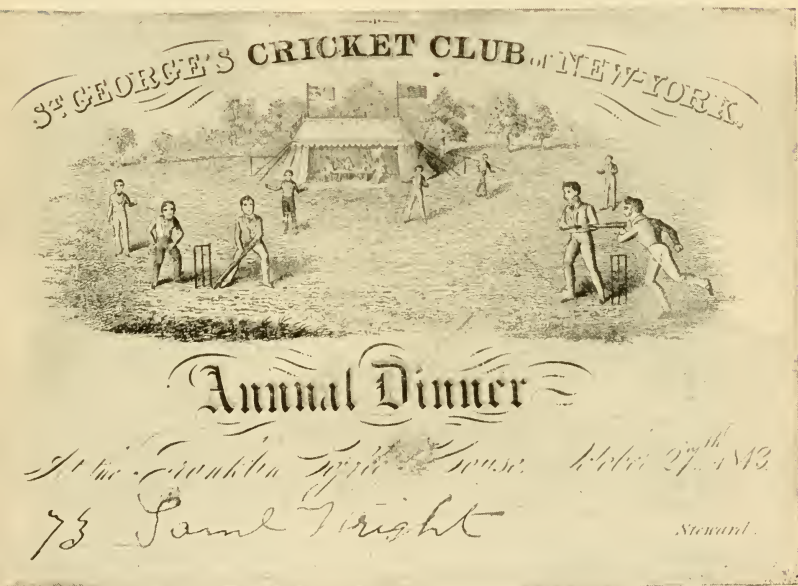 St GEORGE'S CRICKET CLUB of NEW-YORK.
Annual Dinner
At the Franklin House. 27th 1843.
73 Saml Wright
Steward.